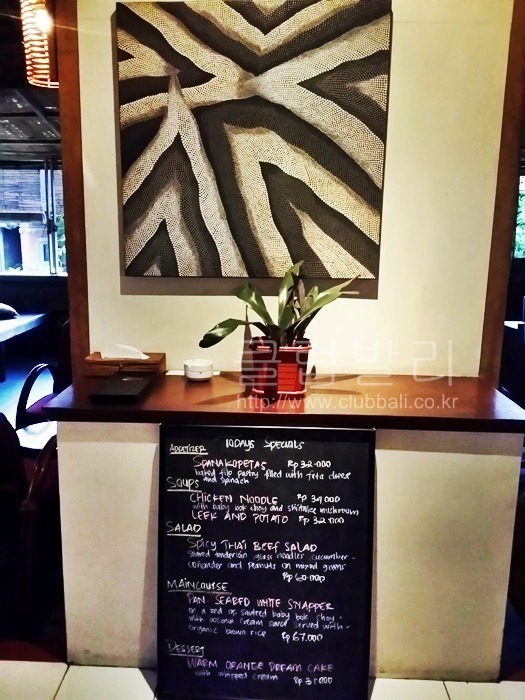 클럽발리
http://www.clubbali.co.kr
TODAYS SPECIALS
APPETIZER
SPANAKOPETAS Rp 32.000
baked filo pastry filled with feta cheese
and spinach
SOUPS
CHICKEN NOODLE Rp 34.000
with baby bok choy and shiitake mushroom
LEEK AND POTATO Rp 32.000
SALAD
SPICY THAI BEEF SALAD
seared tenderloin, glass noodles, cucumber -
coriander and peanuts on mixed greens
Rp 60.000
MAINCOURSE
PAN SEARED WHITE SNAPPER
on a bed of sauteed baby bok choy -
with coconut cream sauce served with -
organic brown rice Rp 67.000
DESSERT
WARM ORANGE DREAM CAKE
with whipped cream Rp 31.000